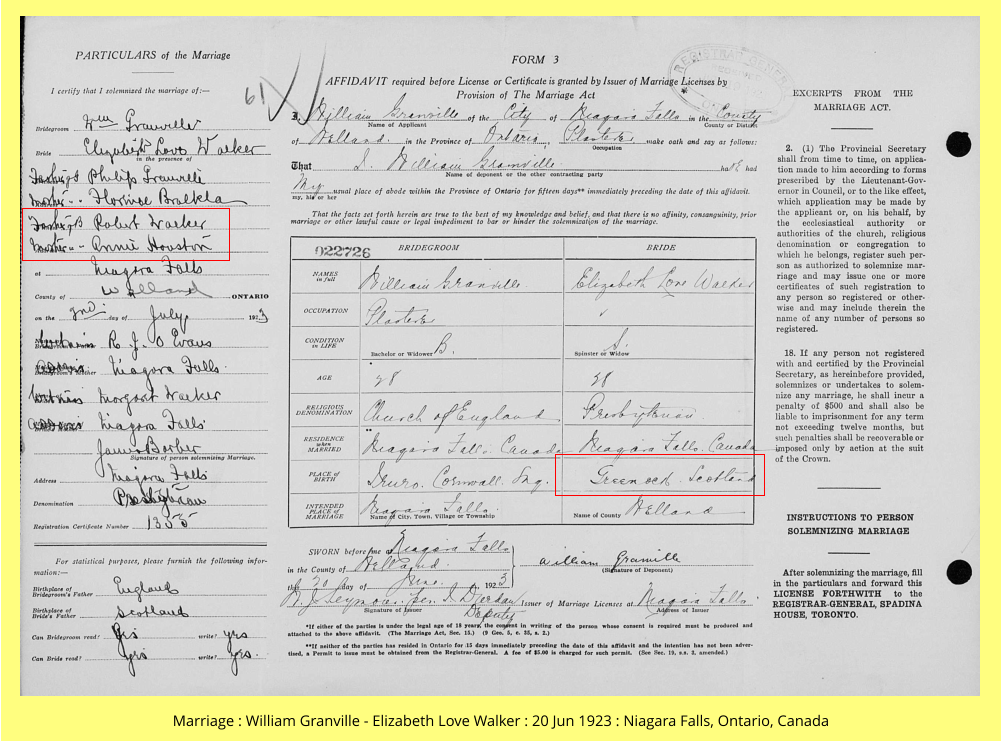 PARTICULARS of the Marriage
I certify that I solemnized the marriage of:—
Bridegroom Wm Granville
Bride Elizabeth Love Walker
in the presence of
Philip Granville
Florinse
Robert Walker
Annie Houston
at Niagara Falls
County of Welland ONTARIO
on the 2nd day of July 1923
R. J. O Evans
Bridegroom's Mother Niagara Falls
witness Margaret Walker
address Niagara Falls
James Barber
Signature of person solemnizing Marriage.
Address Niagara Falls
Denomination Presbyterian
Registration Certificate Number 1355
For statistical purposes, please furnish the following infor-
mation:—
Birthplace of
Bridegroom's Father England
Birthplace of
Bride's Father Scotland
Can Bridegroom read? Yes write? yes
Can Bride read? yes write? Yes.
61
FORM 3
REGISTRAR GENERAL
AFFIDAVIT required before License or Certificate is granted by Issuer of Marriage Licenses by
Provision of The Marriage Act
I, William Granville of the City of Niagara Falls in the County
Name of Applicant County or District
Welland in the Province of Ontario, Plasterer make oath and say as follows:
Occupation
That I, William Granville ha had
Name of deponent or the other contracting party
My usual place of abode within the Province of Ontario for fifteen days** immediately preceding the date of this affidavit.
my, his or her
That the facts set forth herein are true to the best of my knowledge and belief, and that there is no affinity, consanguinity, prior
marriage or other lawful cause or legal impediment to bar or hinder the solemnization of the marriage.
022726 BRIDEGROOM BRIDE
NAMES in full William Granville Elizabeth Love Walker
OCCUPATION Plasterer
CONDITION in LIFE Bachelor or Widower B. Spinster or Widow S.
AGE 28 28
RELIGIOUS DENOMINATION Church of England Presbyterian
RESIDENCE when MARRIED ** Niagara Falls. Canada Niagara Falls. Canada
PLACE OF BIRTH Truro. Cornwall. Eng. Greenock Scotland
INTENDED PLACE OF MARRIAGE Niagara Falls. Name of City, Town, Village or Township Name of County Welland
SWORN before me Niagara Falls
in the County of Welland
this 20 day of June. 1923
William Granville
(Signature of Deponent)
Deputy Issuer of Marriage Licenses at Niagara Falls
Signature of Issuer Address of Issuer
*If either of the parties is under the legal age of 18 years, the consent in writing of the person whose consent is required must be produced and
attached to the above affidavit. (The Marriage Act, Sec. 15.) (9 Geo. 5, c. 35, s. 2.)
**If neither of the parties has resided in Ontario for 15 days immediately preceding the date of this affidavit and the intention has not been adver-
tised, a Permit to issue must be obtained from the Registrar-General. A fee of $5.00 is charged for such permit. (See Sec. 19, s.s. 3, amended.)
EXCERPTS FROM THE
MARRIAGE ACT.
2. (1) The Provincial Secretary
shall from time to time, on applica-
tion made to him according to forms
prescribed by the Lieutenant-Gov-
ernor in Council, or to the like effect,
which application may be made by
the applicant or, on his behalf, by
the ecclesiastical authority or
authorities of the church, religious
denomination or congregation to
which he belongs, register such per-
son as authorized to solemnize mar-
riage and may issue one or more
certificates of such registration to
any person so registered or other-
wise and may include therein the
name of any number of persons so
registered.
18. If any person not registered
with and certified by the Provincial
Secretary, as hereinbefore provided,
solemnizes or undertakes to solem-
nize any marriage, he shall incur a
penalty of $500 and shall also be
liable to imprisonment for any term
not exceeding twelve months, but
such penalties shall be recoverable or
imposed only by action at the suit
of the Crown.
INSTRUCTIONS TO PERSON
SOLEMNIZING MARRIAGE
After solemnizing the marriage, fill
in the particulars and forward this
LICENSE FORTHWITH to the
REGISTRAR-GENERAL, SPADINA
HOUSE, TORONTO.
Marriage : William Granville - Elizabeth Love Walker : 20 Jun 1923 : Niagara Falls, Ontario, Canada